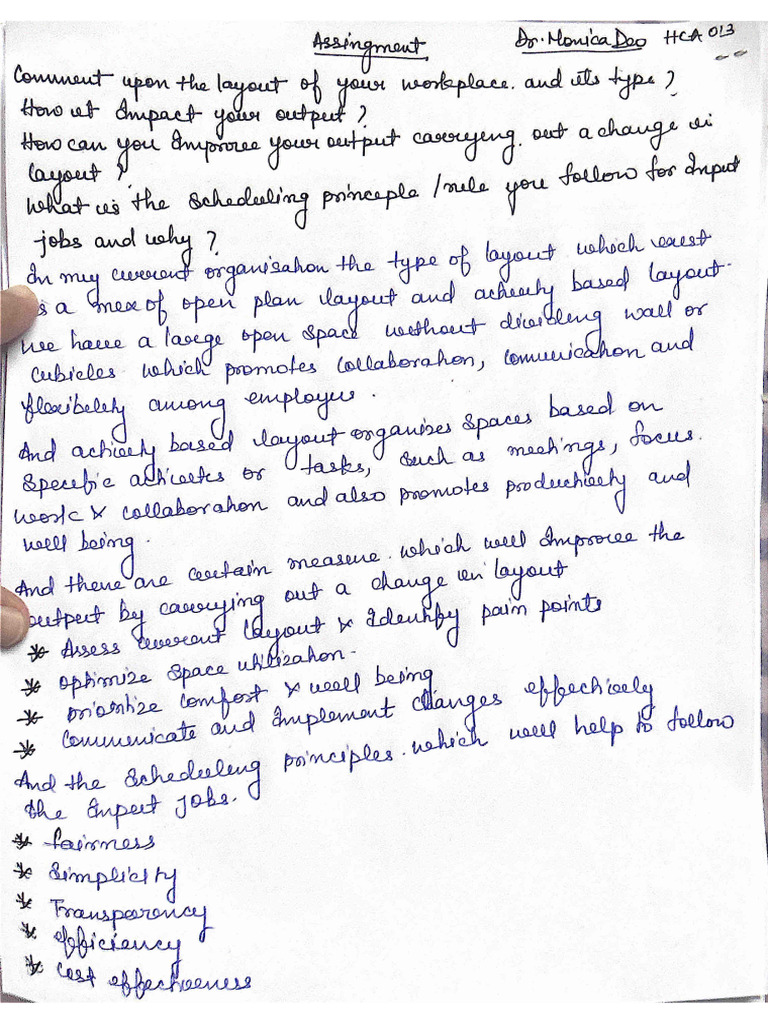 Assingment Dr. Monica Deo HCA 013
Comment upon the layout of your workplace. and its type?
How it Impact your output?
How can you Improve your output carrying out a change in
layout?
What is the scheduling principle / rule you follow for Input
jobs and why?
In my current organisation the type of layout which exist
is a mix of open plan layout and activity based layout.
we have a large open space without dividing wall or
cubicles which promotes collaboration, communication and
flexibility among employees.
And activity based layout organizes spaces based on
specific activities or tasks, such as meetings, focus.
work & collaboration and also promotes productivity and
well being.
And there are certain measure which will Improve the
output by carrying out a change in layout
* Assess current layout & Identify pain points
* optimize space utilization.
* prioritize comfort & well being
* communicate and Implement changes effectively
And the scheduling principles which will help to follow
the Input jobs.
* fairness
* Simplicity
* Transparency
* efficiency
* cost effectiveness